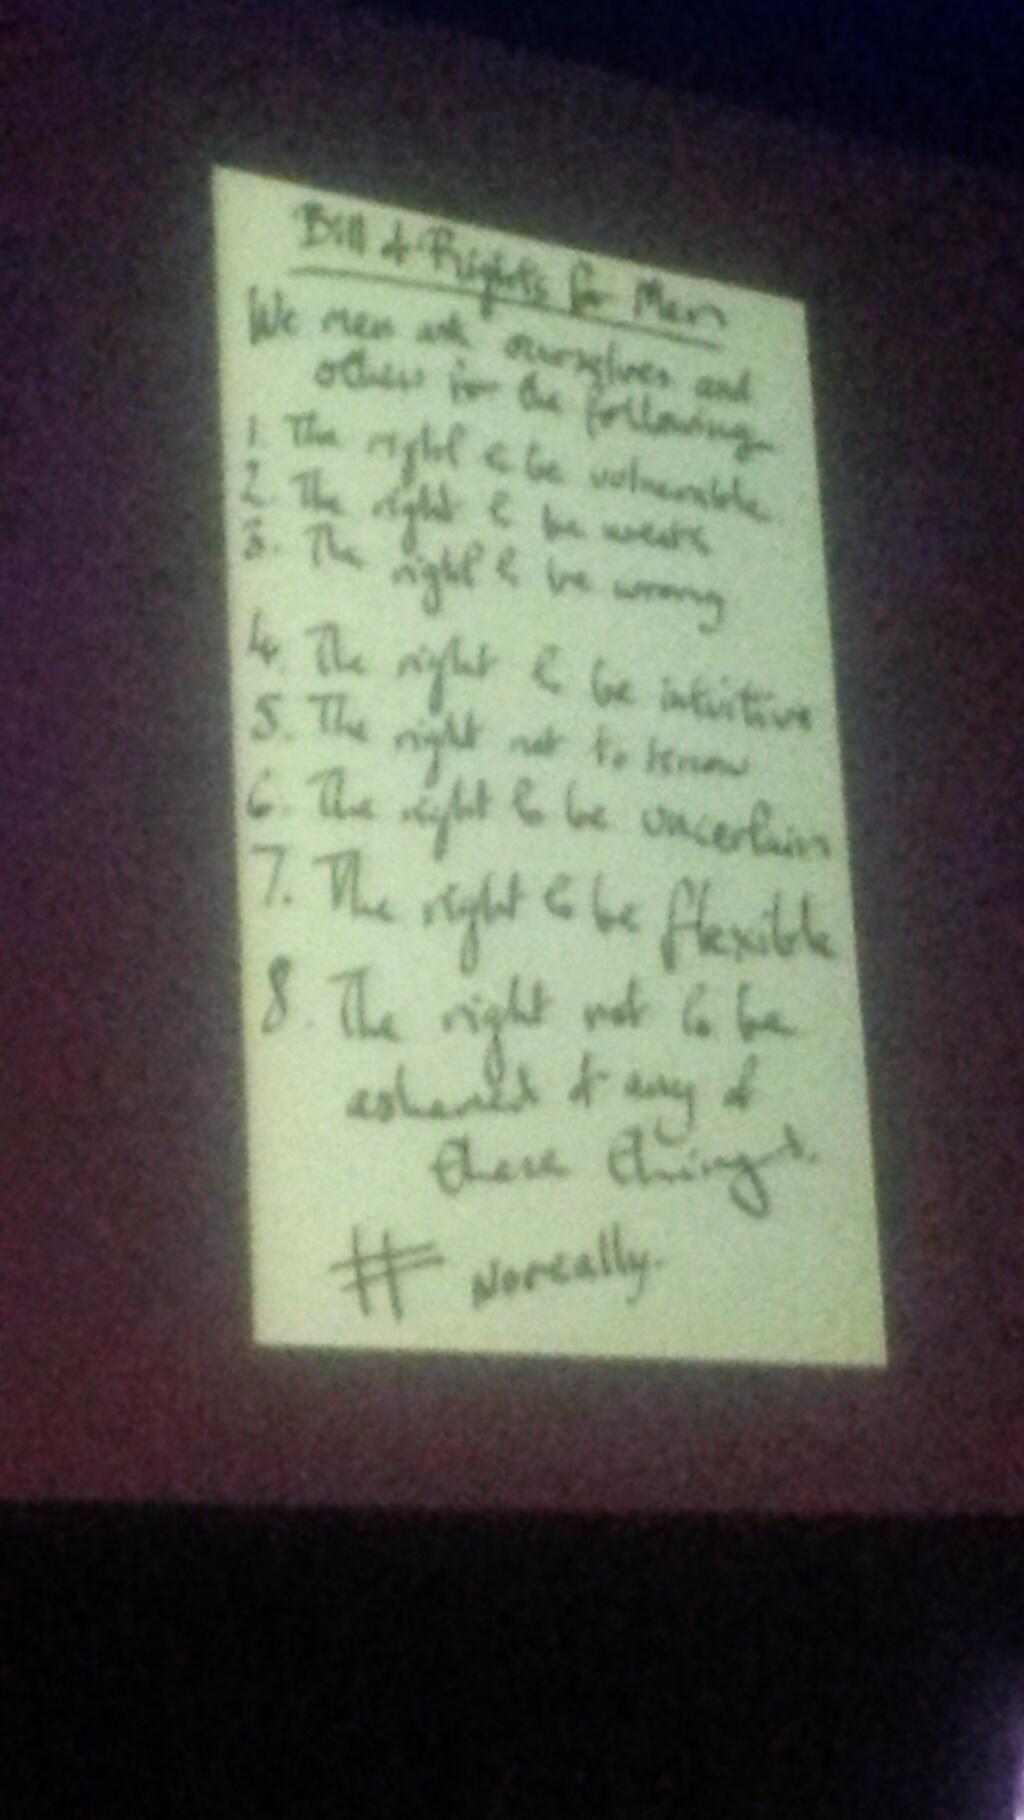 Bill of Rights for Men
We men ask ourselves and
others for the following
1. The right to be vulnerable
2. The right to be weak
3. The right to be wrong
4. The right to be intuitive
5. The right not to know
6. The right to be uncertain
7. The right to be flexible
8. The right not to be
ashamed of any of
these things.
# Noreally.